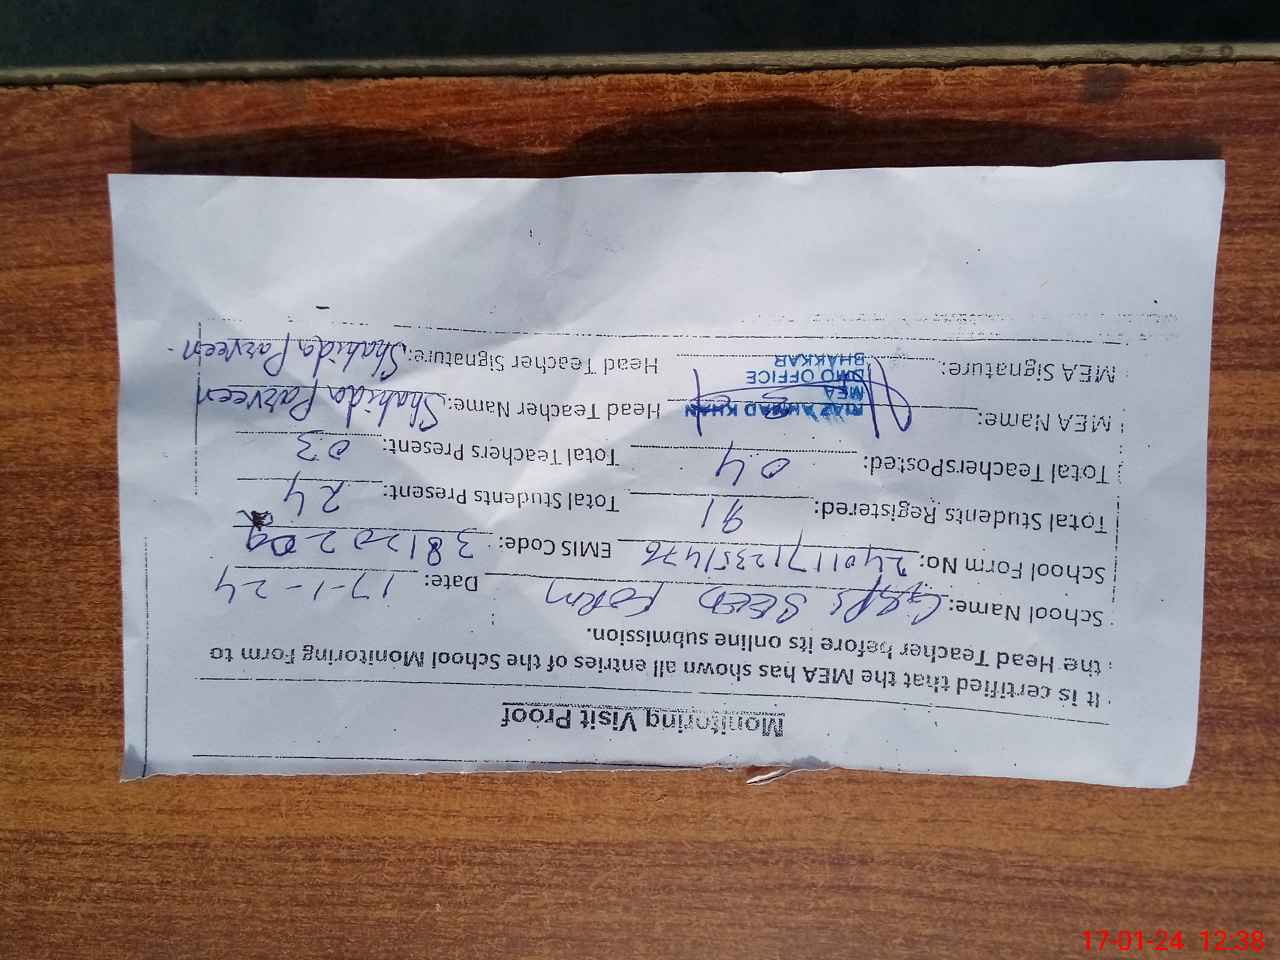 Monitoring Visit Proof
It is certified that the MEA has shown all entries of the School Monitoring Form to
the Head Teacher before its online submission.
School Name: GGPS SEED FORM Date: 17-1-24
School Form No: 24011712351476 EMIS Code: 38120209
Total Students Registered: 91 Total Students Present: 24
Total TeachersPosted: 04 Total Teachers Present: 03
MEA Name: RIAZ AHMAD KHAN Head Teacher Name: Shahida Parveen
MEA
DMO OFFICE
BHAKKAR
MEA Signature: Head Teacher Signature: Shahida Parveen
17-01-24 12:38